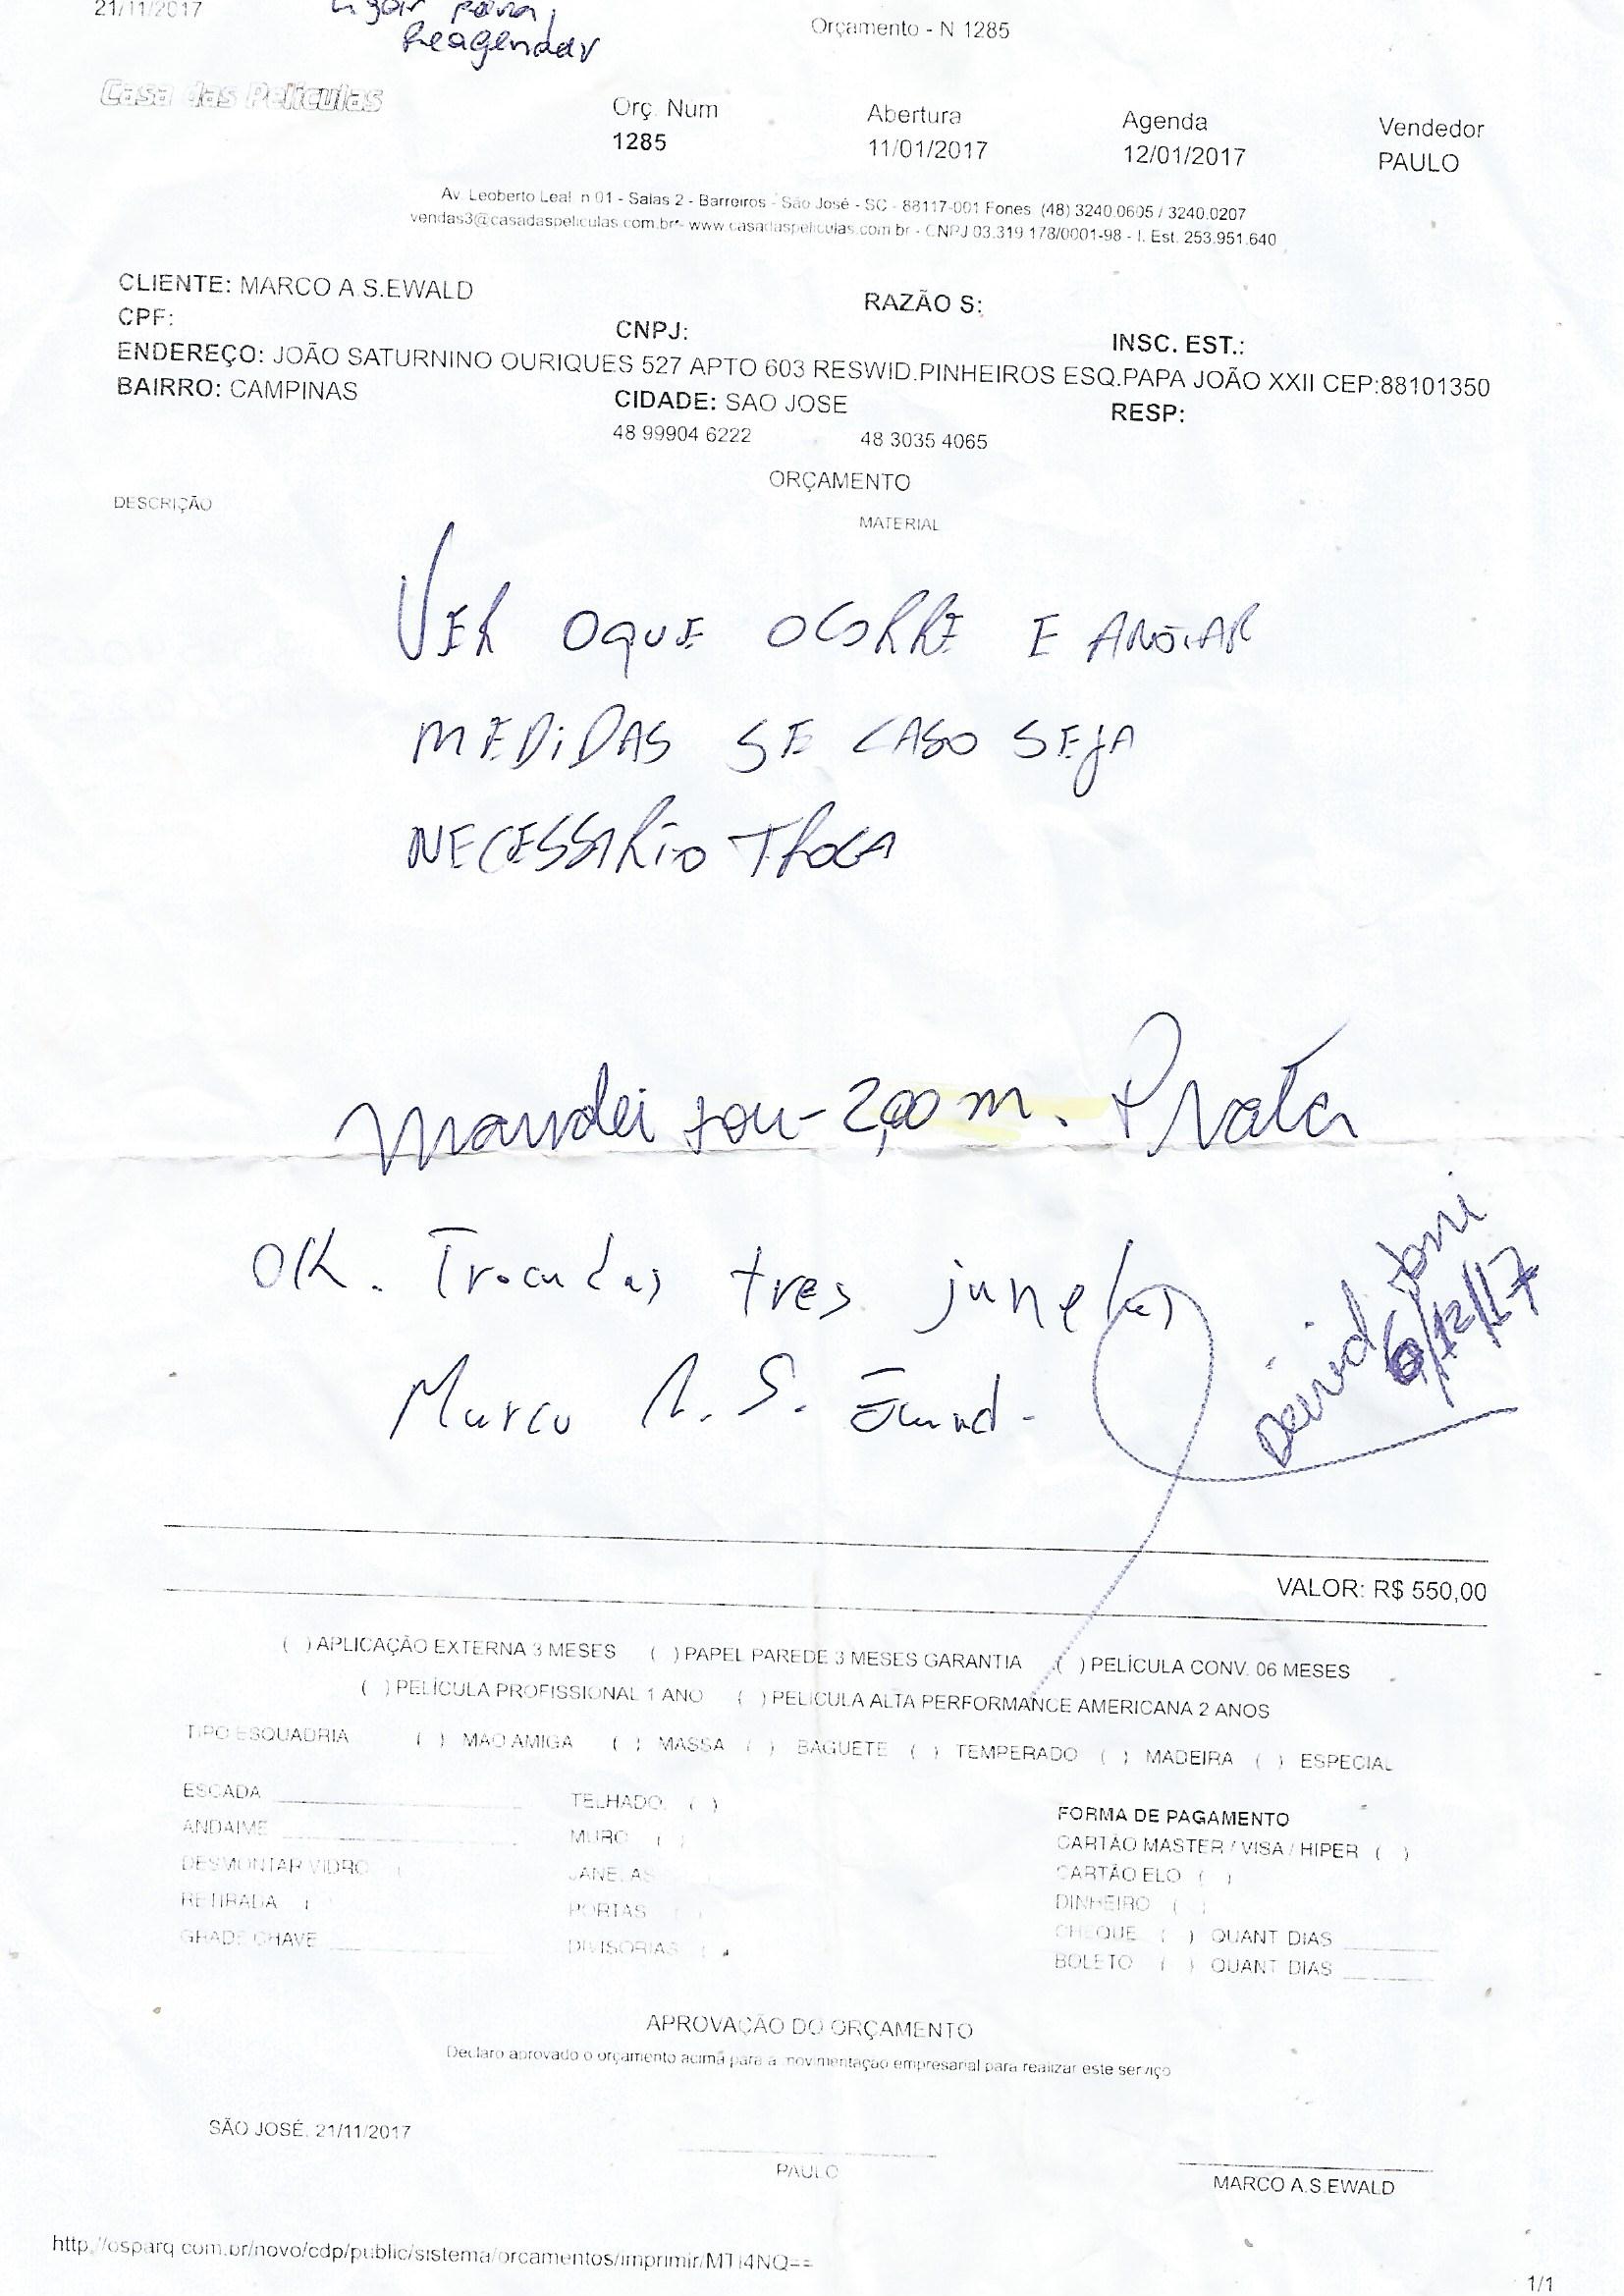 21/11/2017
Ligar para,
Reagendar
Orçamento - N 1285
Casa das Películas
Orç. Num
Abertura
Agenda
Vendedor
1285
11/01/2017
12/01/2017
PAULO
Av. Leoberto Leal n 01 - Salas 2 - Barreiros - São José - SC - 88117-001 Fones (48) 3240.0605 / 3240.0207
vendas3@casadaspeliculas.com.br - www.casadaspeliculas.com.br - CNPJ 03.319.178/0001-98 - I. Est. 253.951.640
CLIENTE: MARCO A.S.EWALD
RAZÃO S:
CPF:
CNPJ:
INSC. EST.:
ENDEREÇO: JOÃO SATURNINO OURIQUES 527 APTO 603 RESWID.PINHEIROS ESQ.PAPA JOÃO XXII CEP:88101350
BAIRRO: CAMPINAS
CIDADE: SAO JOSE
RESP:
48 99904 6222
48 3035 4065
ORÇAMENTO
DESCRIÇÃO
MATERIAL
VER OQUE OCORRE E ANOTAR
MEDIDAS SE CASO SEJA
NECESSÁRIO TROCA
mandei 2,00 m. Prata
OK. Trocadas tres janelas
Marco A. S. Ewald -
Deivid Joni
6/12/17
VALOR: R$ 550,00
( ) APLICAÇÃO EXTERNA 3 MESES ( ) PAPEL PAREDE 3 MESES GARANTIA ( ) PELÍCULA CONV. 06 MESES
( ) PELÍCULA PROFISSIONAL 1 ANO ( ) PELICULA ALTA PERFORMANCE AMERICANA 2 ANOS
TIPO ESQUADRIA ( ) MAO AMIGA ( ) MASSA ( ) BAGUETE ( ) TEMPERADO ( ) MADEIRA ( ) ESPECIAL
ESCADA
TELHADO ( )
FORMA DE PAGAMENTO
ANDAIME
MURO ( )
CARTÃO MASTER / VISA / HIPER ( )
DESMONTAR VIDRO (
JANELAS
CARTÃO ELO ( )
RETIRADA (
PORTAS ( )
DINHEIRO ( )
GRADE CHAVE
DIVISORIAS (
CHEQUE ( ) QUANT DIAS
BOLETO ( ) QUANT DIAS
APROVAÇÃO DO ORÇAMENTO
Declaro aprovado o orçamento acima para a movimentação empresarial para realizar este serviço
SÃO JOSÉ, 21/11/2017
PAULO
MARCO A.S.EWALD
http://osparq.com.br/novo/cdp/public/sistema/orcamentos/imprimir/MTI4NQ==
1/1